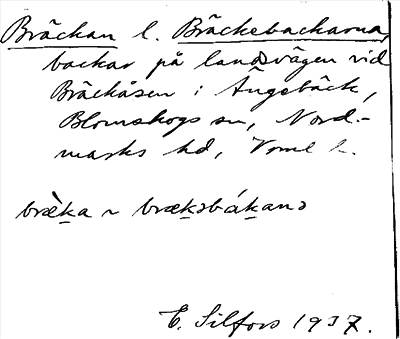 Bräckan l. Bräckebackarna,
backar på landsvägen vid
Bräckåsen i Ängebäck,
Blomskogs sn, Nord-
marks hd, Vrml l.
bræ̀ka ~ brækəbákanə
E. Silfors 1937.